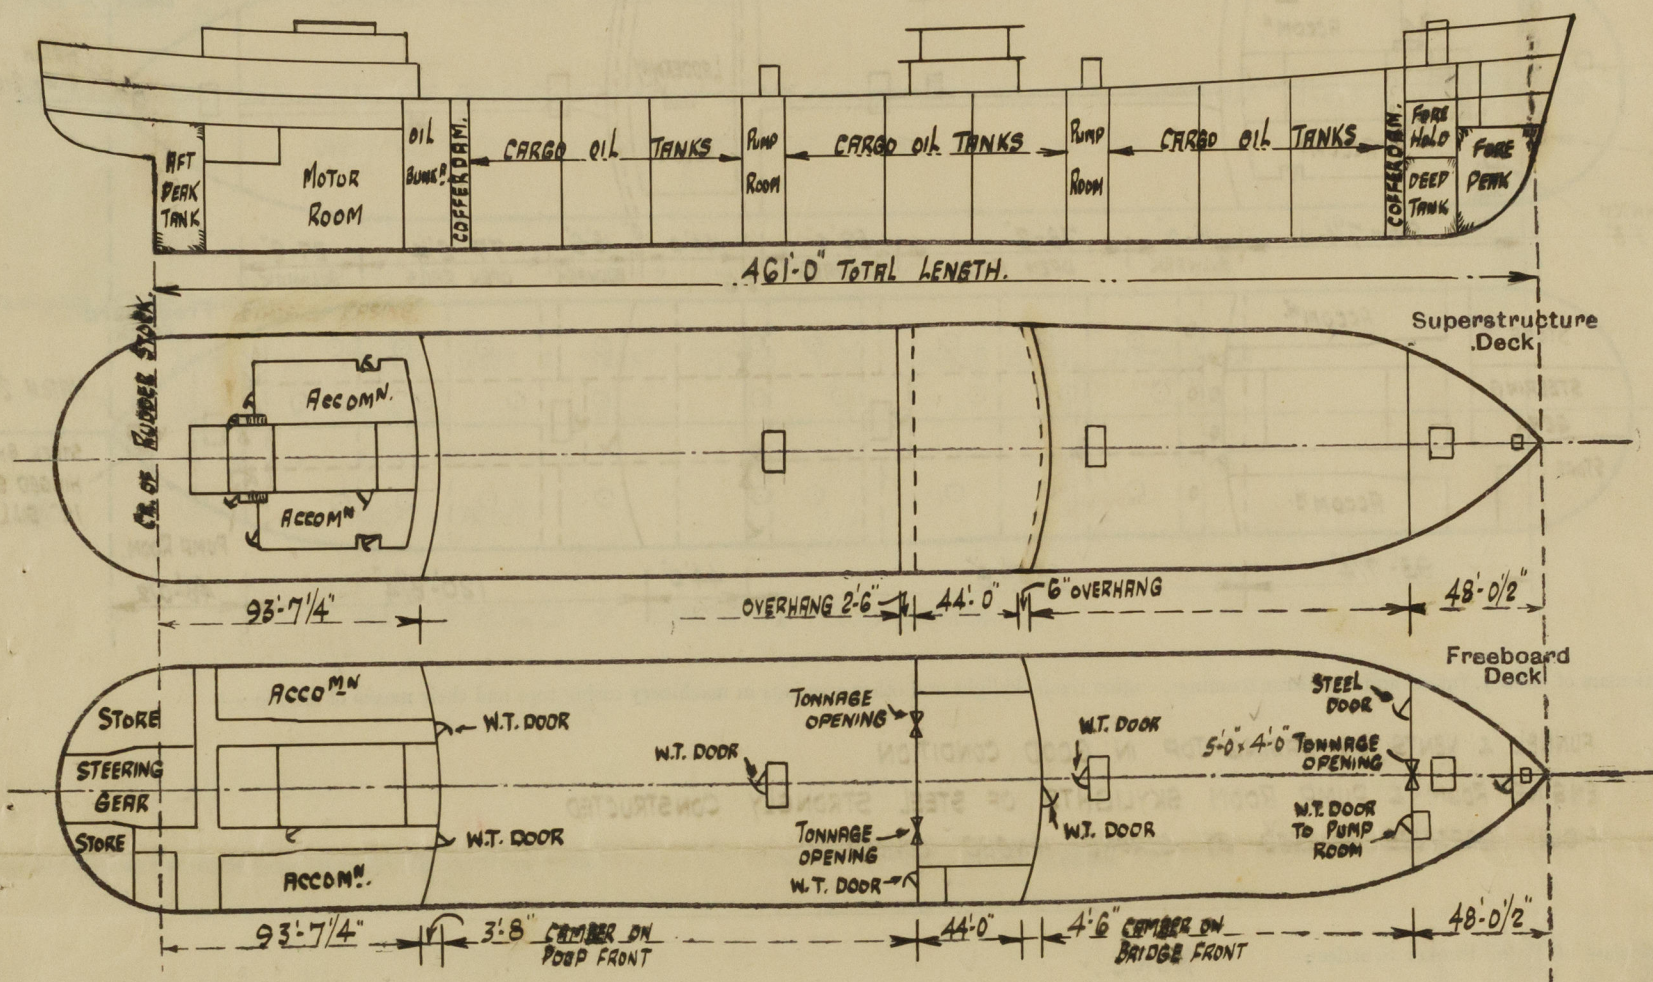 AFT
PEAK
TANK
MOTOR
ROOM
OIL
BUNKR.
COFFERDAM.
CARGO OIL TANKS
PUMP
ROOM
CARGO OIL TANKS
PUMP
ROOM
CARGO OIL TANKS
COFFERDAM.
FORE
HOLD
DEEP
TANK
FORE
PEAK
461'-0" TOTAL LENGTH.
CR. OF RUDDER STOCK.
Superstructure
Deck
ACCOMN.
ACCOMN
93'-7 1/4"
OVERHANG 2'-6"
44'-0"
6" OVERHANG
48'-0 1/2"
Freeboard
Deck
STORE
STEERING
GEAR
STORE
ACCOMN
ACCOMN.
W.T. DOOR
W.T. DOOR
W.T. DOOR
TONNAGE
OPENING
TONNAGE
OPENING
W.T. DOOR
W.T. DOOR
W.T. DOOR
STEEL
DOOR
5'-0" x 4'-0" TONNAGE
OPENING
W.T. DOOR
TO PUMP
ROOM
93'-7 1/4"
3'-8" CAMBER ON
POOP FRONT
44'-0"
4'-6" CAMBER ON
BRIDGE FRONT
48'-0 1/2"